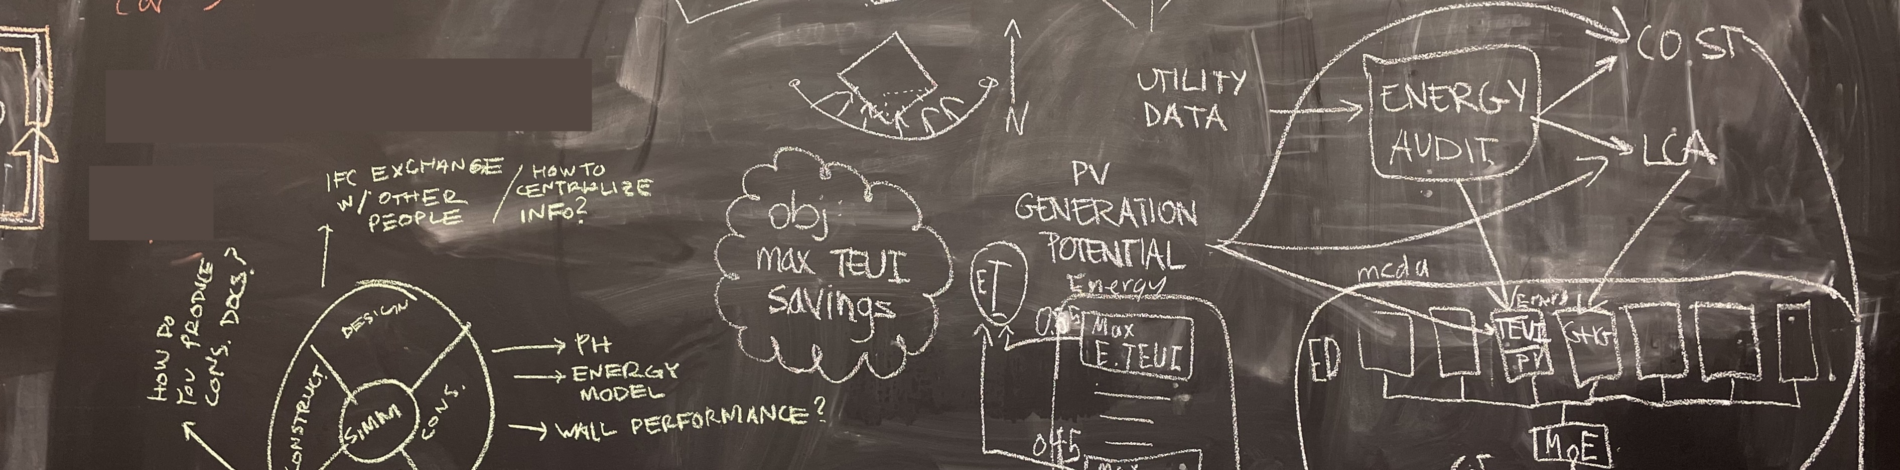 IFC EXCHANGE
W/ OTHER
PEOPLE
/ HOW TO
CENTRALIZE
INFO?
HOW DO
YOU PRODUCE
CONS. DOCS.?
DESIGN
CONSTRUCT.
SIMM
CONS.
PH
ENERGY
MODEL
WALL PERFORMANCE?
N
obj:
max TEUI
savings
UTILITY
DATA
ENERGY
AUDIT
COST
LCA
PV
GENERATION
POTENTIAL
Energy
ET
Max
E.TEUI
0.45
mcda
ED
TEUI
PV
GHG
MOE